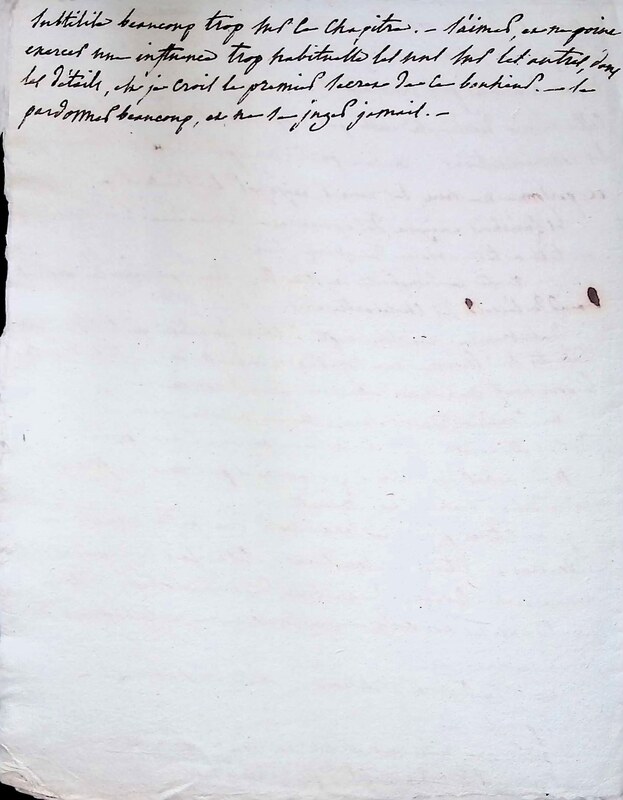 subtilise beaucoup trop sur ce chapitre. — s'aimer, et ne point
exercer une influence trop habituelle les uns sur les autres, dans
les détails, est je crois le premier secret de ce bonheur. — se
pardonner beaucoup, et ne se juger jamais. —